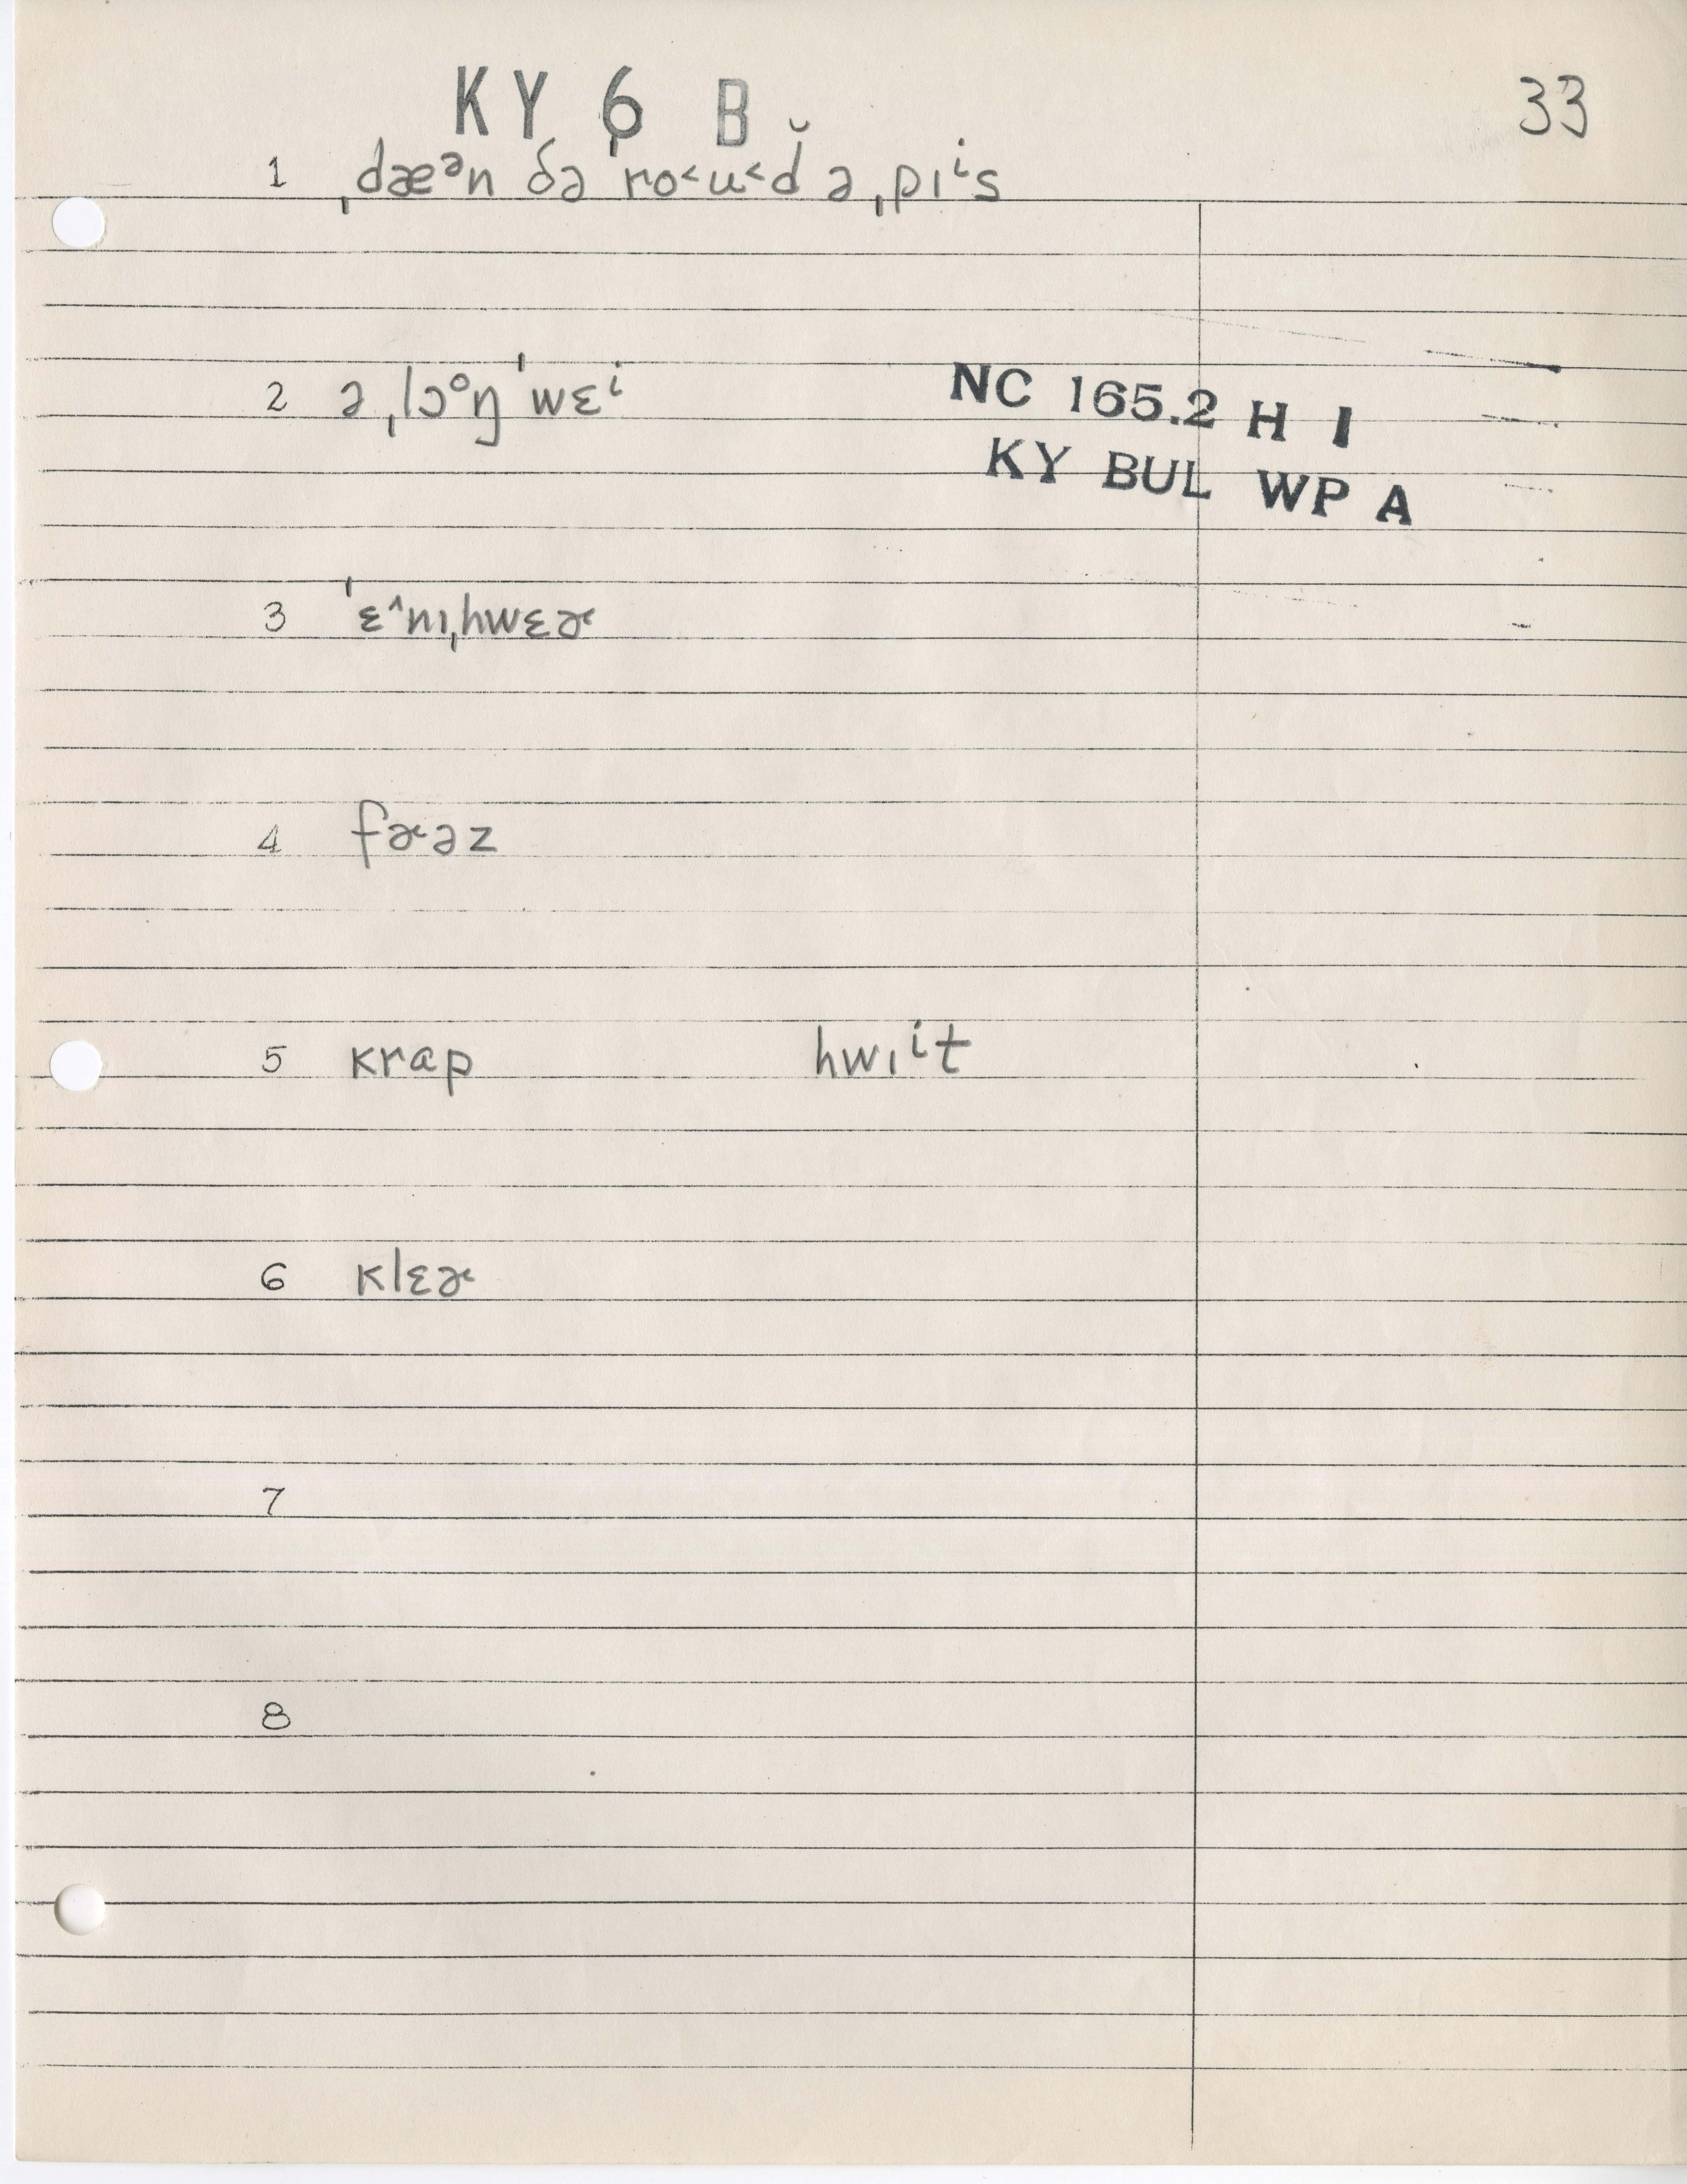 KY 6 B 33
1 ˌdæᵊn ðə ˈro˂u˂d̆ əˌpɪⁱs
2 ə ˌlɔᵒŋ ˈwɛⁱ
NC 165.2 H I
KY BUL WP A
3 ˈɛ^nɪˌhwɛɚ
4 fɚəz
5 krap hwɪⁱt
6 klɛɚ
7
8